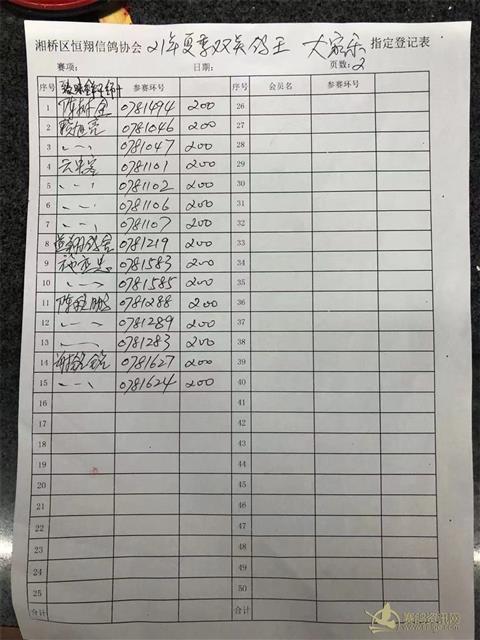 湘桥区恒翔信鸽协会 21年夏季双关鸽王 大家乐 指定登记表
赛项: 日期: 页数: 2
序号 参赛环号 序号 会员名 参赛环号
1 0781494 200 26
2 0781046 200 27
3 〃 0781047 200 28
4 0781101 200 29
5 〃 0781102 200 30
6 〃 0781106 200 31
7 〃 0781107 200 32
8 0781219 200 33
9 0781583 200 34
10 〃 0781585 200 35
11 0781288 200 36
12 〃 0781289 200 37
13 〃 0781283 200 38
14 0781627 200 39
15 〃 0781624 200 40
16 41
17 42
18 43
19 44
20 45
21 46
22 47
23 48
24 49
25 50
合计 合计
赛鸽资讯网